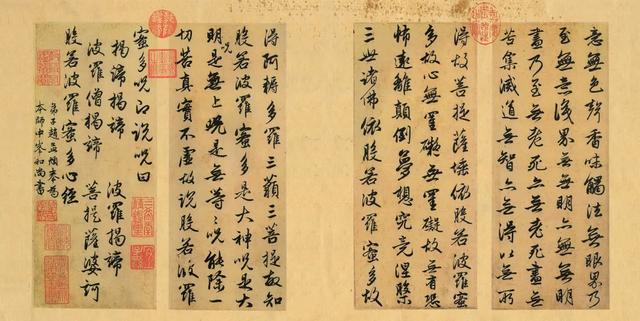 意無色聲香味觸法無眼界乃
至無意識界無無明亦無無明
盡乃至無老死亦無老死盡無
苦集滅道無智亦無得以無所
得故菩提薩埵依般若波羅蜜
多故心無罣礙無罣礙故無有恐
怖遠離顛倒夢想究竟涅槃
三世諸佛依般若波羅蜜多故
得阿耨多羅三藐三菩提故知
般若波羅蜜多是大神呪是大
明呪是無上呪是無等等呪能除一
切苦真實不虛故說般若波羅
蜜多呪即說呪曰
揭諦揭諦 波羅揭諦
波羅僧揭諦 菩提薩婆訶
般若波羅蜜多心經
弟子趙孟頫奉為
本師中峯和尚書